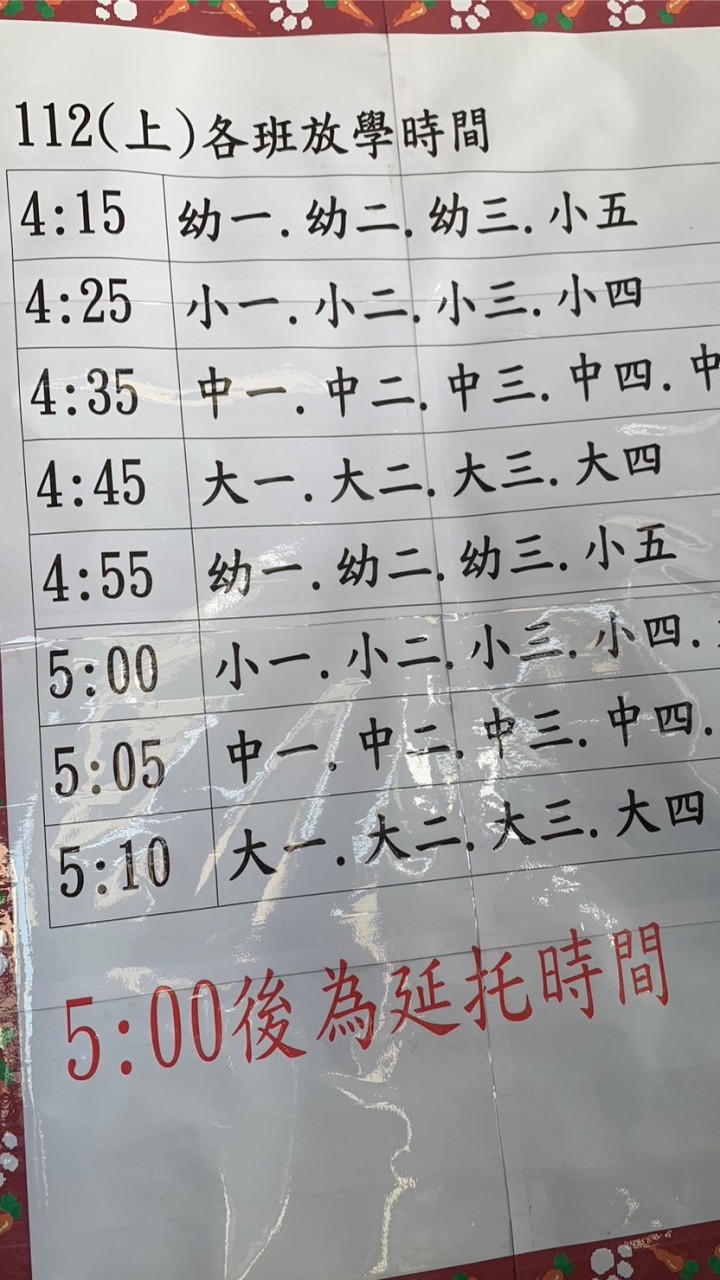 112(上)各班放學時間
4:15 幼一.幼二.幼三.小五
4:25 小一.小二.小三.小四
4:35 中一.中二.中三.中四.中
4:45 大一.大二.大三.大四
4:55 幼一.幼二.幼三.小五
5:00 小一.小二.小三.小四.
5:05 中一.中二.中三.中四.
5:10 大一.大二.大三.大四
5:00後為延托時間